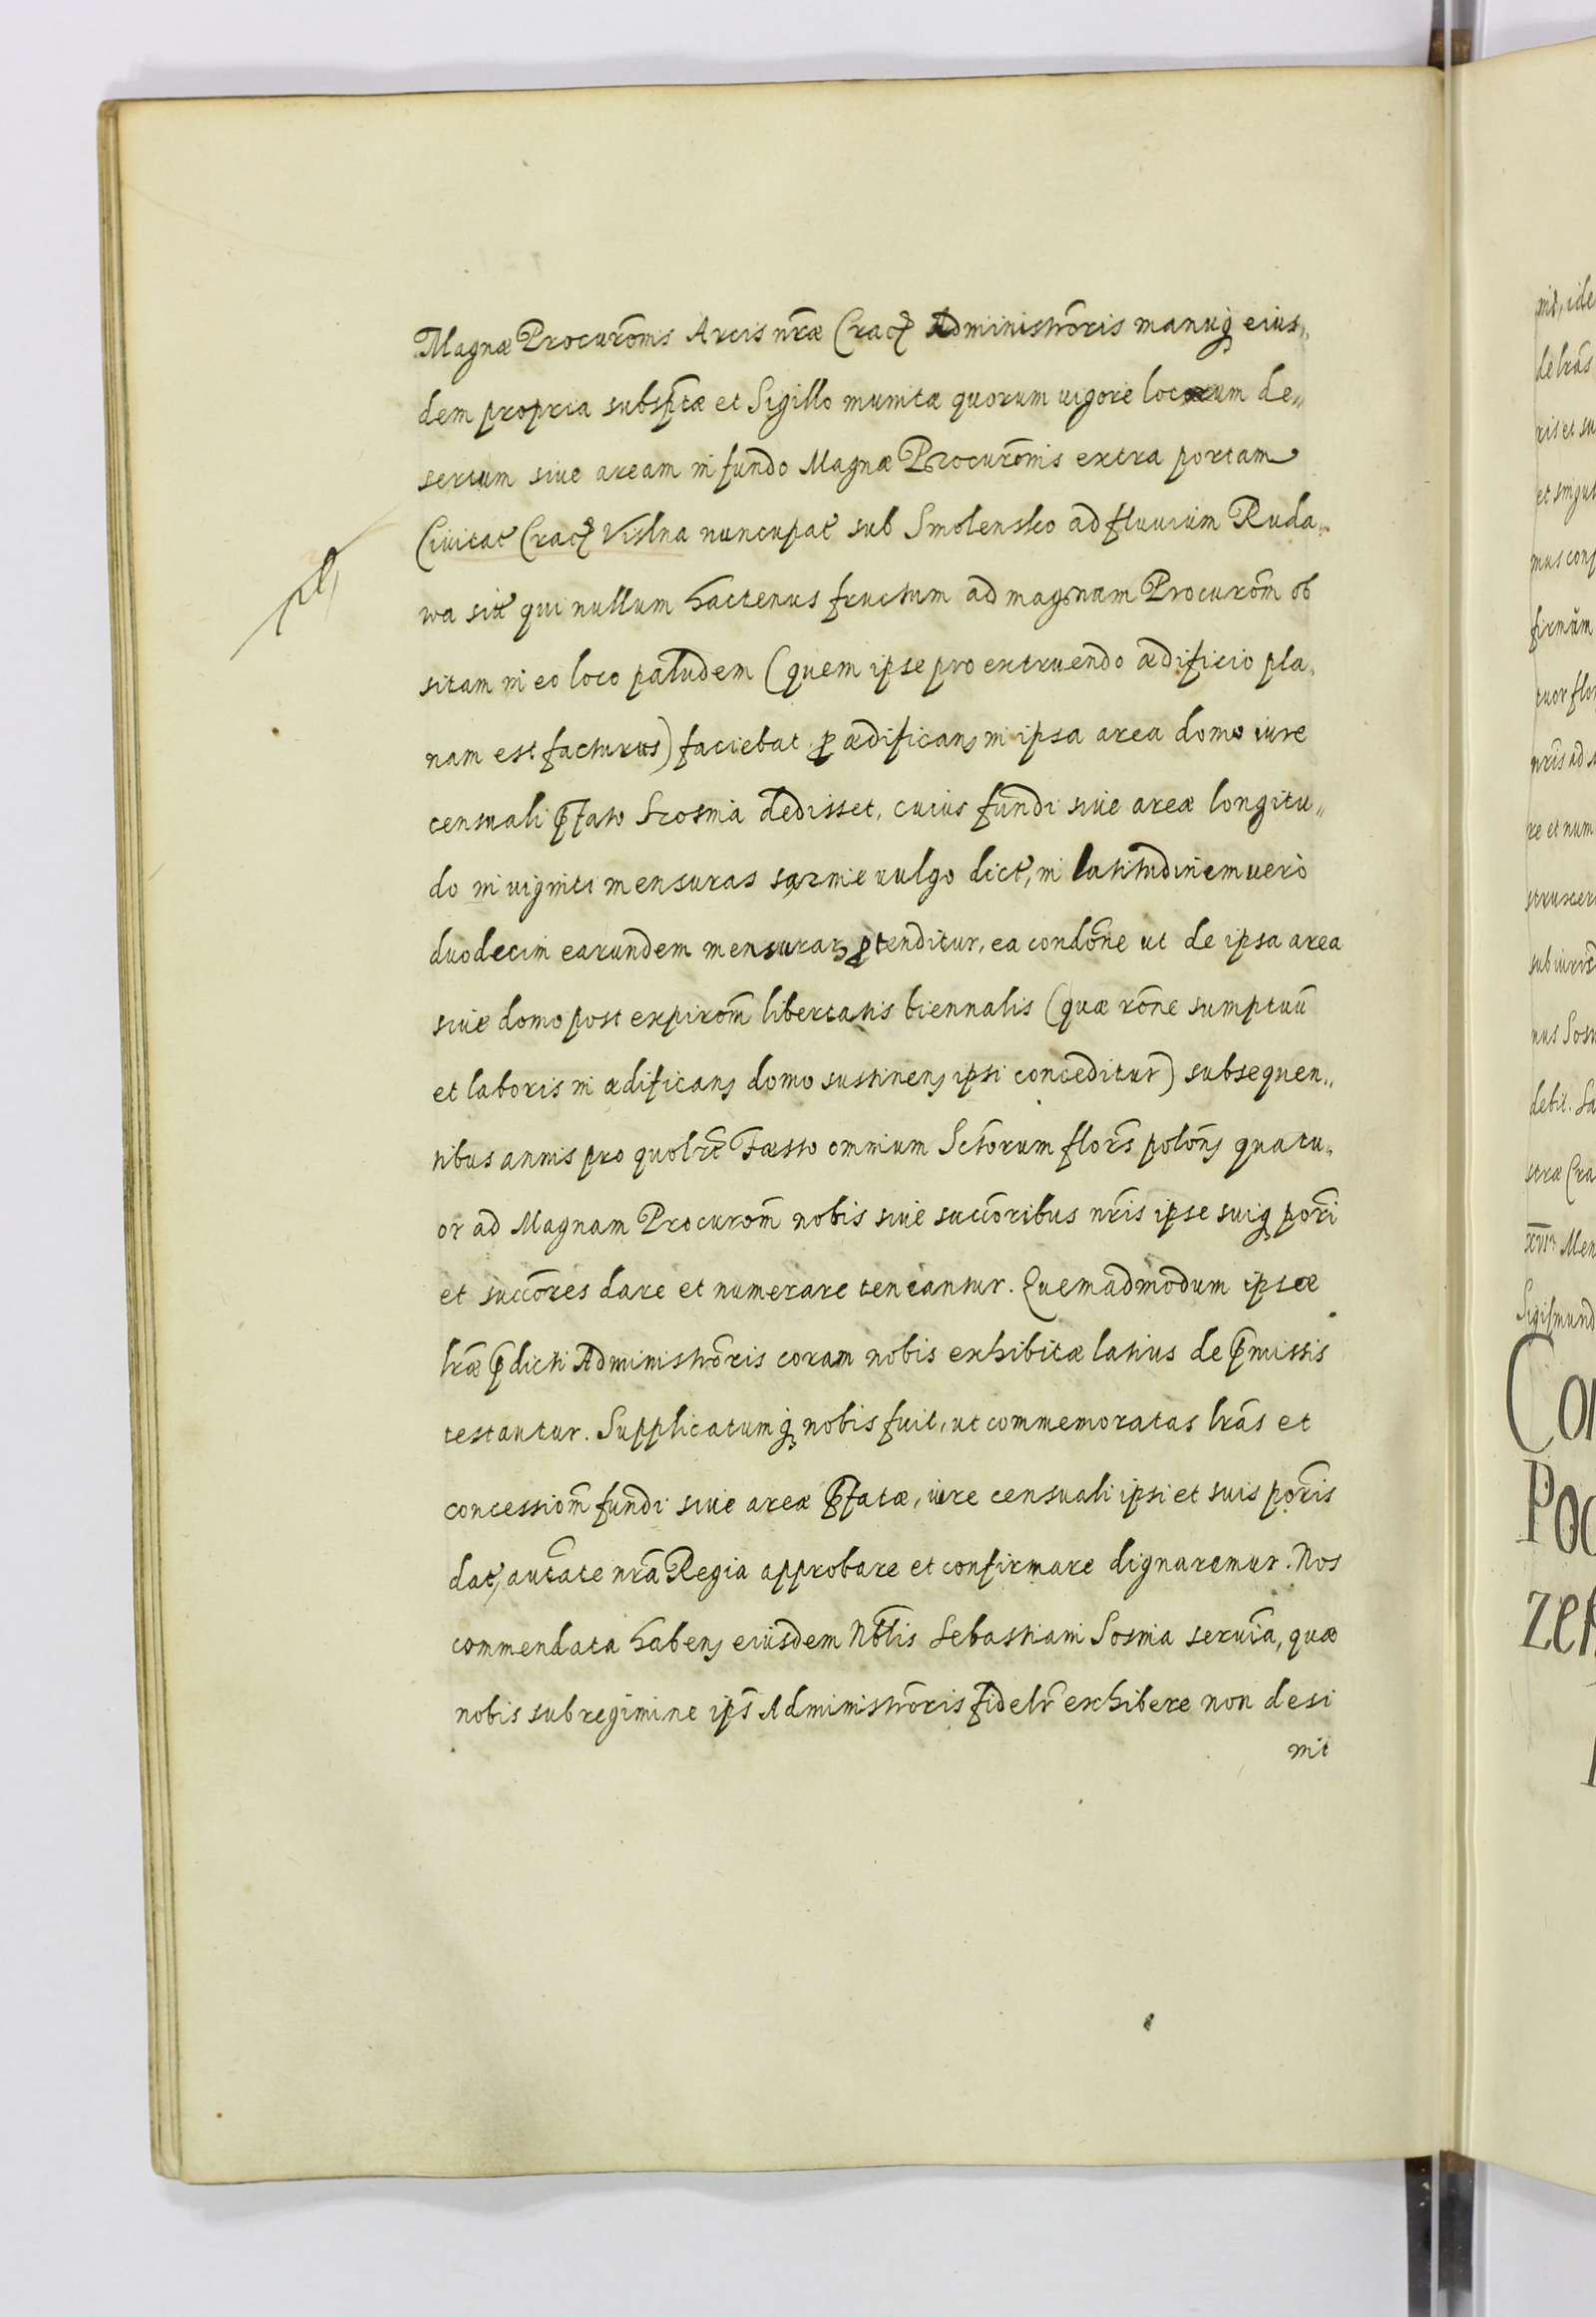 Magnæ Procurõnis Arcis nr̃æ Crac̃ Administrõris manuq̃ eius„
dem propria subsp̃tæ et Sigillo munitæ quorum uigore locum de„
sertum siue aream in fundo Magnæ Procurõnis extra portam
Ciuitat̃ Crac̃ Vislna nuncupat̃ sub Smolensko ad fluuium Ruda„
wa sit̃ qui nullum hactenus fructum ad magnam Procurõm ob
sitam in eo loco paludem (quem ipse pro extruendo ædificio pla„
nam est facturus) faciebat ꝓ ædifican̨ in ipsa area domo iure
censuali p̃fato Scosnia dedisset, cuius fundi siue areæ longitu„
do in uiginti mensuras sąznie uulgo dict̃, in latitudinem uerò
duodecim earundem mensurar̨ ꝓtenditur, ea condõne ut de ipsa area
siue domo post expirõm libertatis biennalis (quæ rõne sumptuũ
et laboris in ædifican̨ domo sustinen̨ ipsi conceditur) subsequen„
tibus annis pro quolĩt Fæsto omnium Sctorum florẽs polõn̨ quatu„
or ad Magnam Procurom̃ nobis siue succõribus nr̃is ipse suiq̃ põri
et succõres dare et numerare teneantur. Quemadmodum ipsæ
lr̃æ p̃dicti Administrõris coram nobis exhibitæ latius de p̃missis
testantur. Supplicatumq̃ nobis fuit, ut commemoratas lr̃as et
concessiom̃ fundi siue areæ p̃fatæ, iure censuali ipsi et suis põris
dat̨, autãte nr̃a Regia approbare et confirmare dignaremur. Nos
commendata haben̨ eiusdem Nb̃lis Sebastiani Sosnia seruĩa, quæ
nobis sub regimine ips̃ Administrõris fidelr̃ exhibere non desi
nit